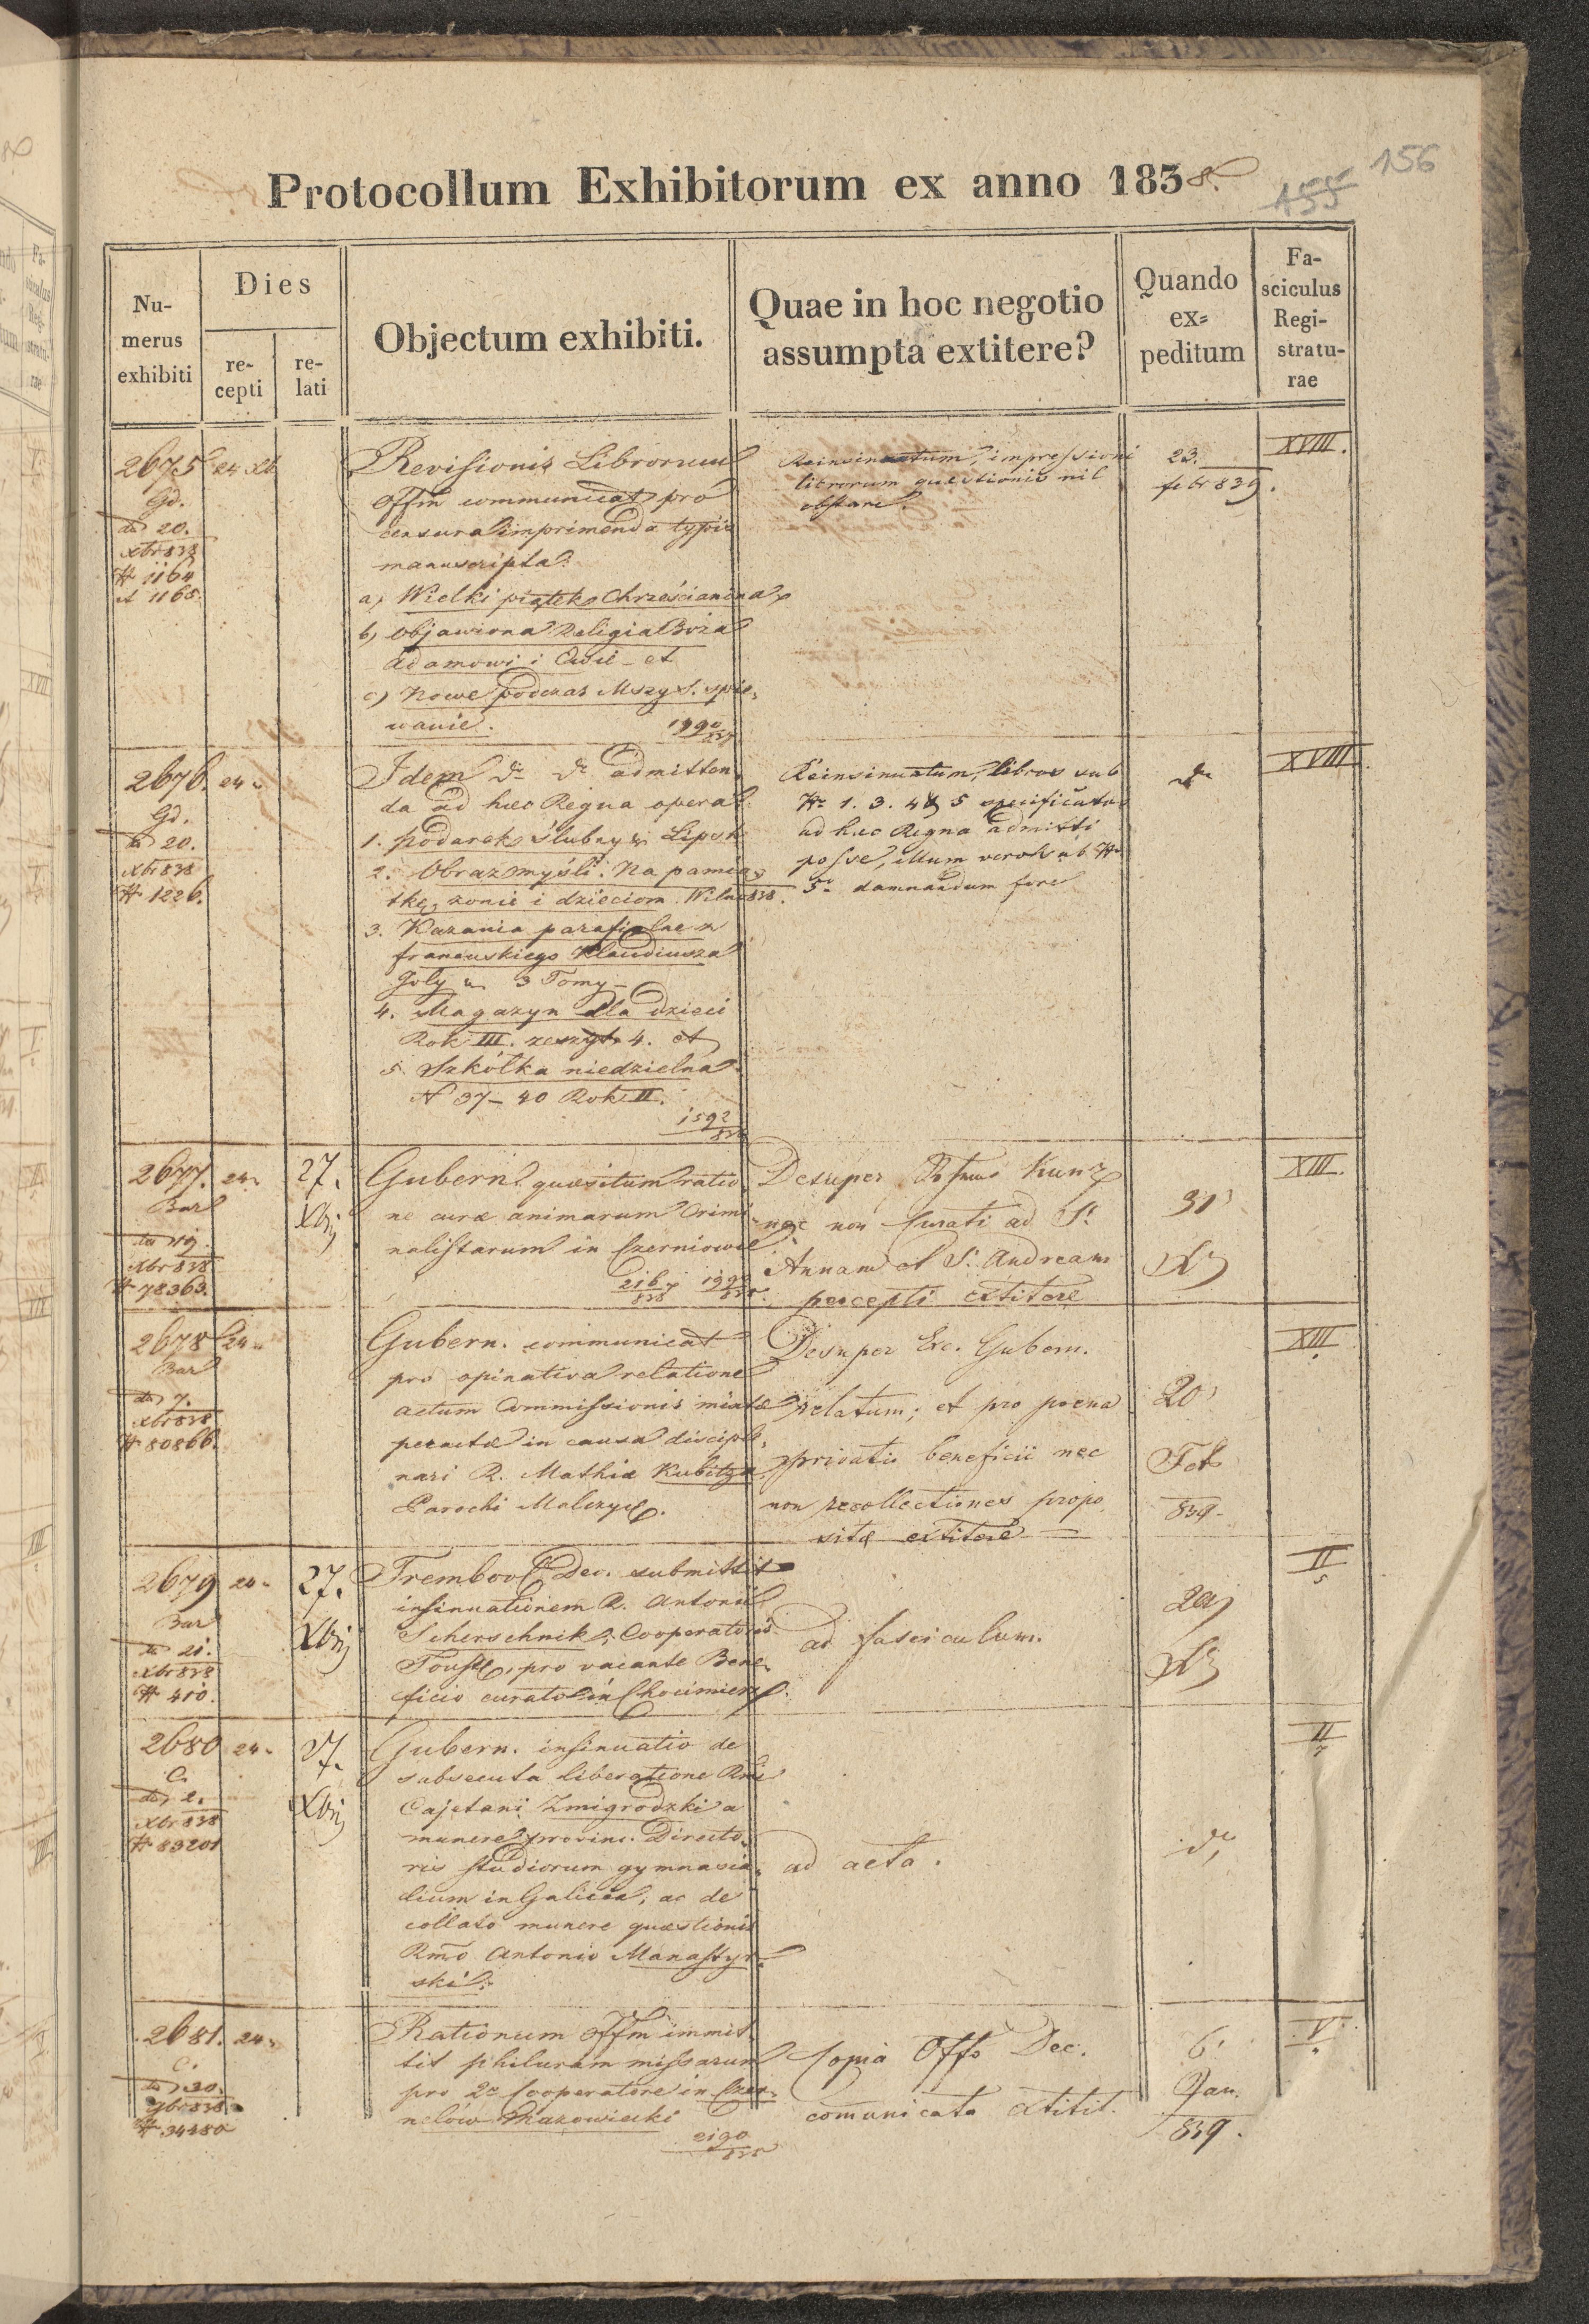 156
Protocollum Exhibitorum ex anno 1838.
155
Nu-
merus
exhibiti
Dies
re-
cepti
re-
lati
Objectum exhibiti.
Quae in hoc negotio
assumpta extitere?
Quando
ex-
peditum
Fa-
sciculus
Regi-
stratu-
rae
2675 24 Xb
Gd.
20.
Xbr 838
№ 1164
et 1165.
Revisionis Librorum
Offm communicat pro
censura imprimenda typis
manuscripta:
a, Wielki piątek Chrześcianina
b, Objawiona Religia Boża
Adamowi i Ewie - et
c) Nowe podczas Mszy S. śpie-
wanie.
1990
837
Reinsinuatum, impressioni
librorum quaestionis nil
obstare.
23.
febr 839.
XVIII.
2676. 24.
Gd.
20.
Xbr 838
№ 1226.
Idem admitten-
da ad haec Regna opera:
1. Podarek ślubny Lipsk
2. Obraz myśli. Na pamią-
tkę żonie i dzieciom. Wilno 838.
3. Kazania parafialne z
francuskiego Klaudiusza
Joly 3 Tomy -
4. Magazyn dla dzieci
Rok III. zeszyt 4. et
5. Szkółka niedzielna
N 37 - 40 Rok II.
1592
Reinsinuatum, libros sub
№ 1. 3. 4 & 5 specificatos
ad haec Regna admitti
posse, illum vero sub №
damnandum fore
XVIII.
2677. 24.
Bar
19.
Xbr 838
№ 78363.
27.
Xbr
Gubern. quaesitum ratio-
ne curae animarum Crimi-
nalistarum in Czerniowce
2167
838
1990
Desuper Kunz
nec non Curati ad St.
Annam et St. Andream
percepti extitere
31
Xbr
XIII.
2678 24.
Bar
7.
Xbr 838
№ 80866.
Gubern. communicat
pro opinativa relatione
actum Commissionis mixtae
peractae in causa discipli-
nari R. Mathiae Kubitza
Parochi Malczyce.
Desuper Exc. Gubern.
relatum; et pro poena
privatio beneficii nec
non recollectiones propo
sitae extitere
20
Feb
839.
XIII.
2679 24.
Bar
21.
Xbr 838
№ 410.
27.
Xbr
Trembovl. Dec. submittit
insinuationem R. Antonii
Scherschnik, Cooperatoris
Touste, pro vacante Bene-
ficio curato in Chocimierz.
ad fasciculum.
29
Xbr
II
5
2680 24.
C.
2.
Xbr 838
№ 83201
27.
Xbr
Gubern. insinuatio de
subsecuta liberatione Rmi
Cajetani Zmigrodzki a
munere provinc. Directo-
ris studiorum gymnasia-
lium in Galicia, ac de
collato munere quaestionis
Rmo Antonio Manastyr-
ski.
ad acta.
II
7
2681. 24.
C.
838
№ 34280
Rationum Offm immit-
tit philuram missarum
pro 2o Cooperatore in Czer-
nelów Mazowiecki
2190
Copia Offo Dec.
comunicata extitit.
6.
Jan.
839.
V.